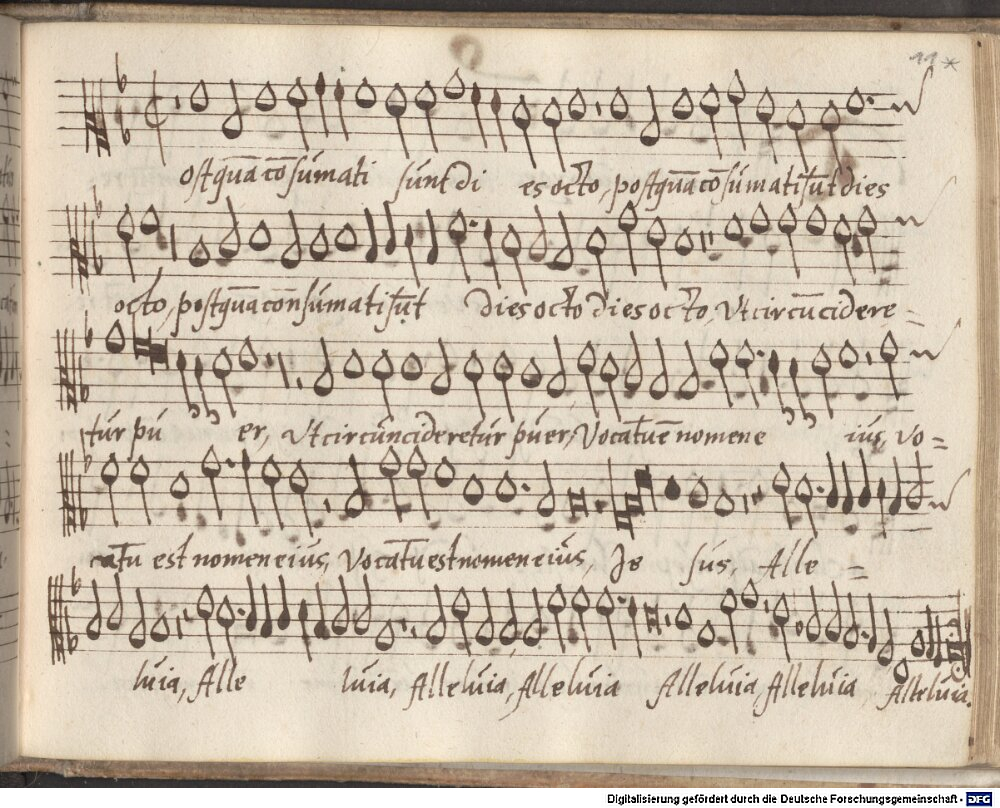 11*
ostquã cõsumati sunt di es octo, postquã cõsumati sũt dies
octo, postquã consumati sũt dies octo dies octo, Ut circũcidere=
tur pu er, Ut circuncideretur puer, Vocatũ e nomen e ius, vo=
catũ est nomen eius, Vocatũ est nomen eius, Je sus, Alle=
luia, Alle luia, Alleluia, Alleluia Alleluia, Alleluia Alleluia.
Digitalisierung gefördert durch die Deutsche Forschungsgemeinschaft - DFG